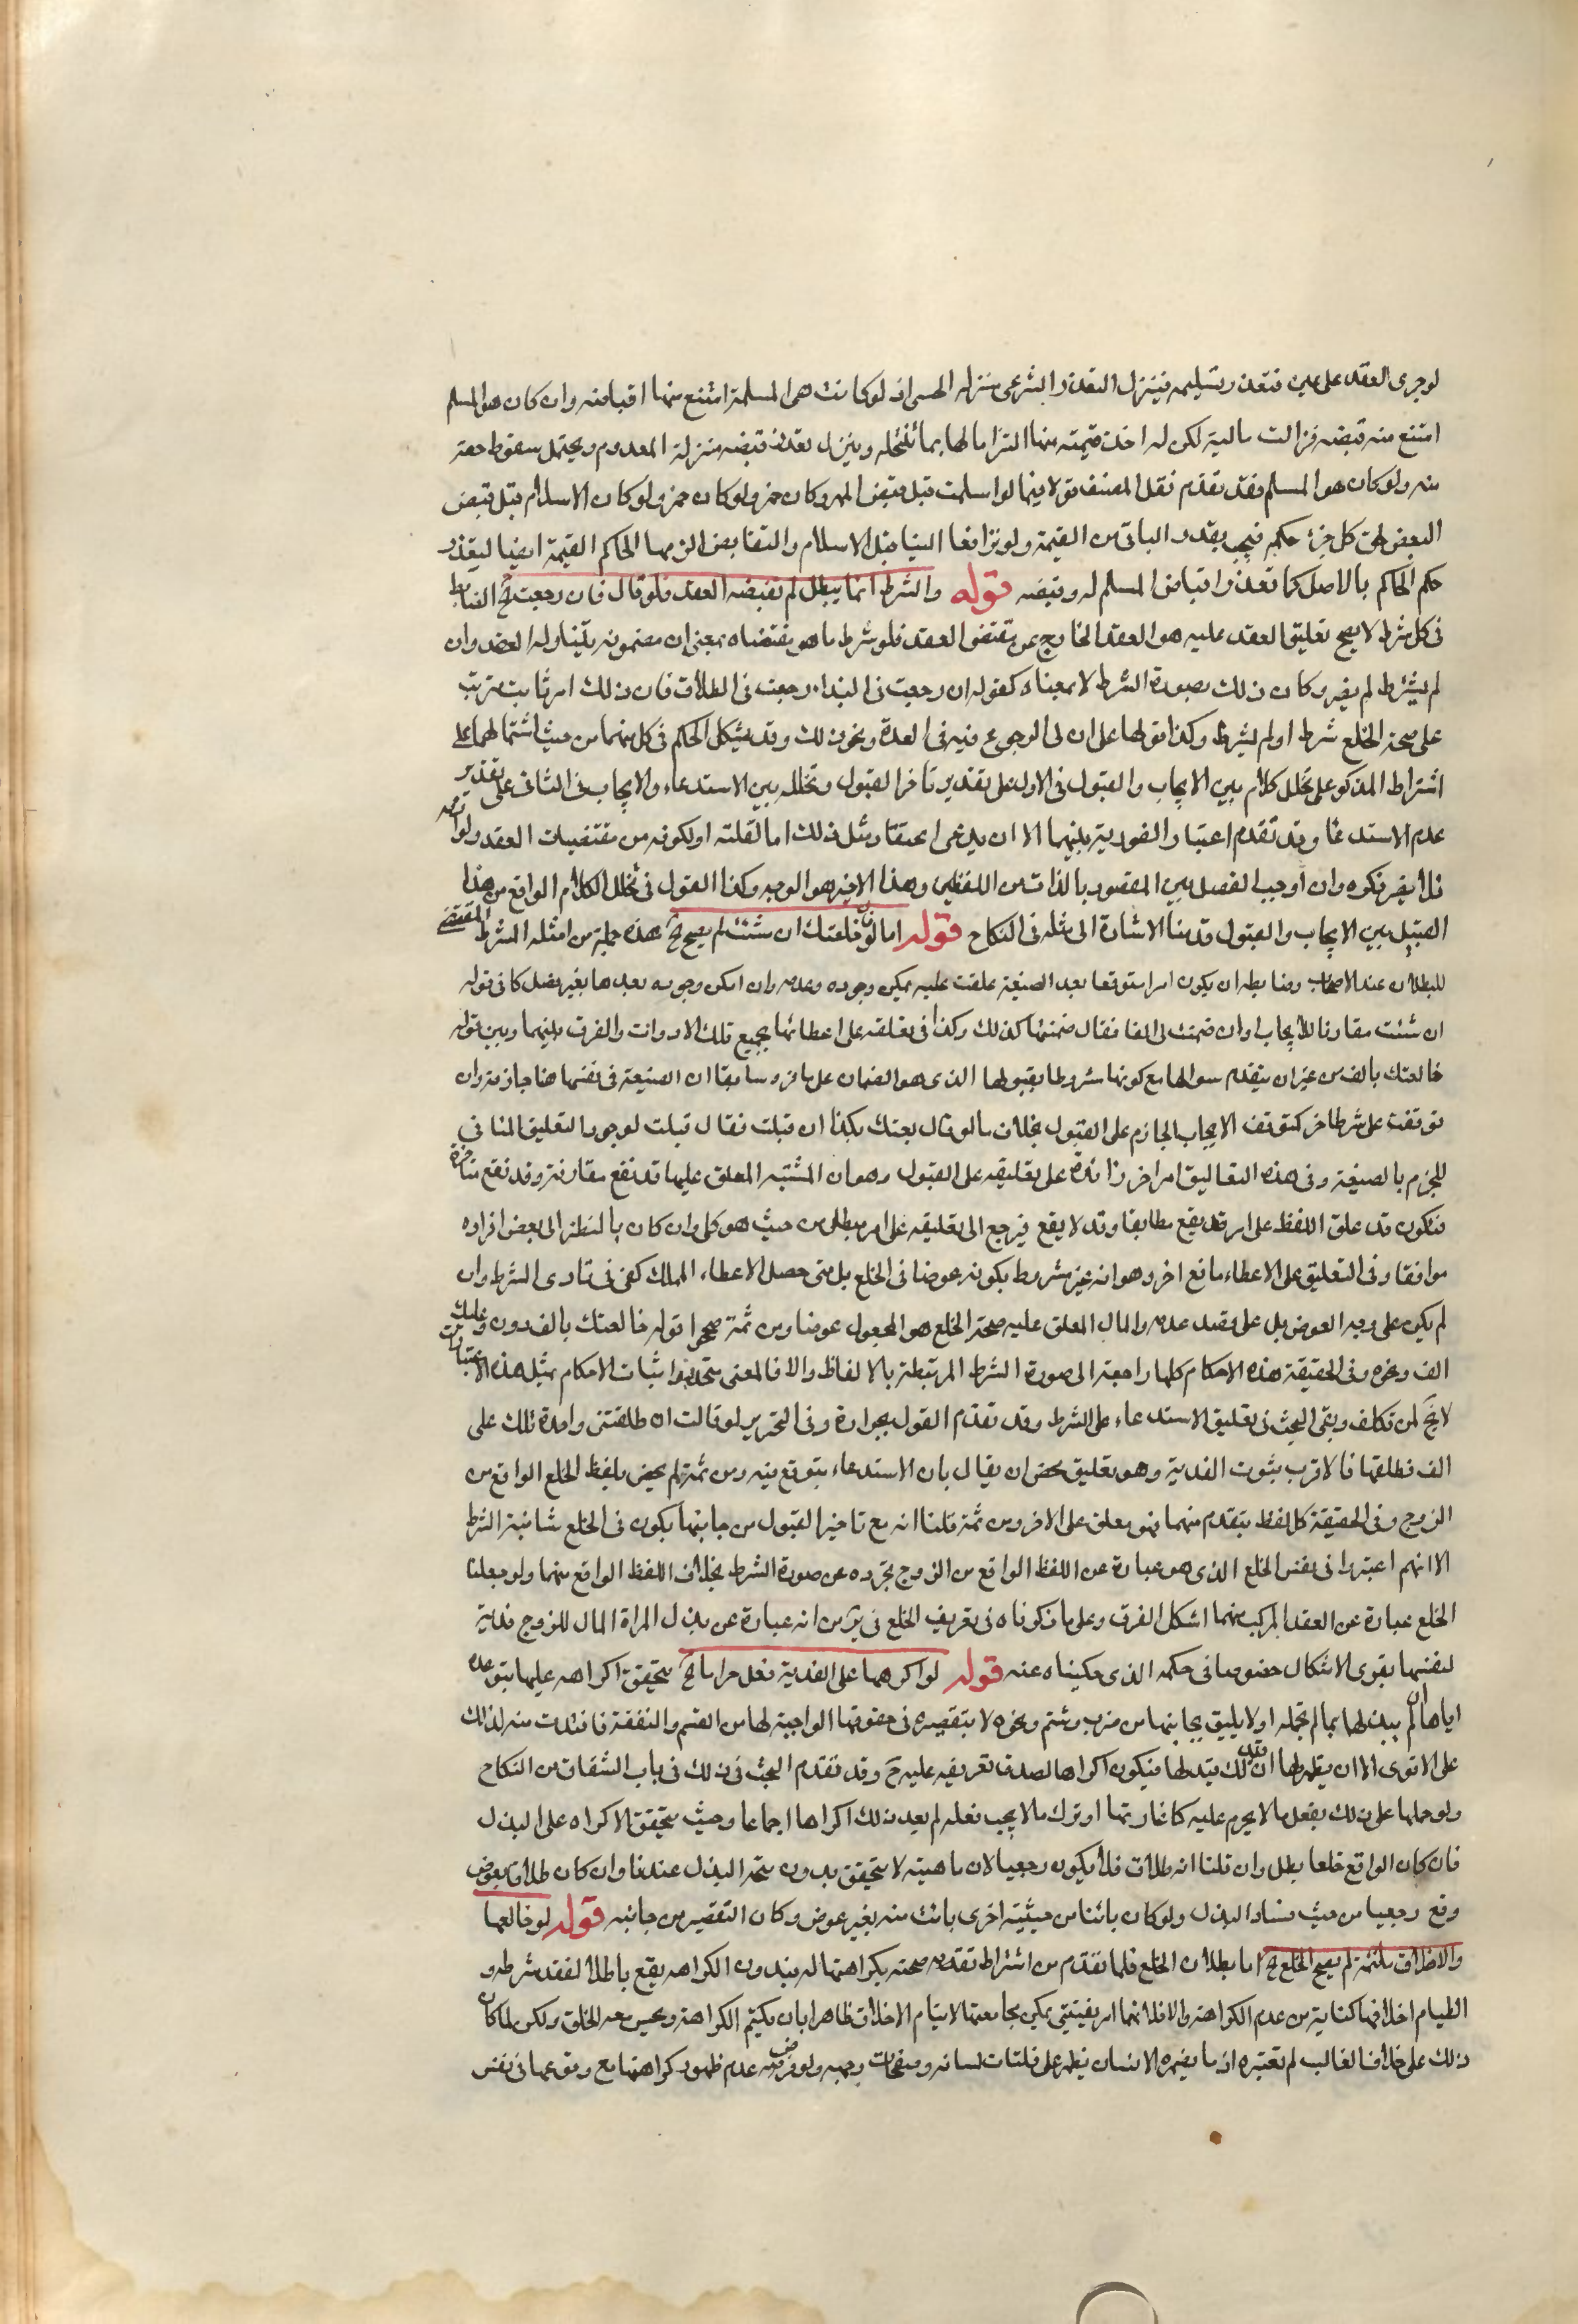 لو جرى العقد على عين فتعذر تسليمه فينزل التعذر الشرعى منزلة الحسى اذ لو كانت هى المسلمة امتنع منها اقباضه وان كان هو المسلم
امتنع منه قبضه فزالت ماليته لكن له اخذ قيمته منها التزاما لها بما تنتحله وينزل تعذر قبضه منزلة المعدوم ويحتمل سقوط حقه
منه ولو كان هو المسلم فقد تقدم نقل المصنف قولا فيما لو اسلمت قبل قبض المهر وكان خمرا ولو كان خمرا ولو كان الاسلام قبل قبض
البعض لحق كل جزء حكمه فيجب بقدر الباقى من القيمة ولو ترافعا الينا قبل الاسلام والتقابض الزمها الحاكم القيمة ايضا لتعذر
حكم الحاكم بالاصل كما تعذر اقباض المسلم له وقبضه قوله والشرط انما يبطل لم تقتضه العقد فلو قال فان رجعت الخ الضابط
فى كل شرط لا يصح تعليق العقد عليه هو العقد الخارج عن مقتضى العقد فلو شرط ما هو مقتضاه بمعنى ان مضمونه يتناوله العقد وان
لم يشترط لم يضر وكان ذلك بصورة الشرط لا بمعناه كقوله ان رجعت فى البذل رجعت فى الطلاق فان ذلك امر ثابت مترتب
على صحة الخلع شرط او لم يشرط وكذا قولها على ان لى الرجوع فيه فى العدة ونحو ذلك وقد يشكل الحكم فى كل منهما من حيث اشتمالهما على
اشتراط المذكور على تخلل كلام بين الايجاب والقبول فى الاول على تقدير تاخر القبول وتخلله بين الاستدعاء والايجاب فى الثانى على تقدير
عدم الاستدعاء وقد تقدم اعتبار الفورية بينهما الا ان يدعى اعتقار مثل ذلك اما لقلته او لكونه من مقتضيات العقد ولوازمه
فلا يضر ذكره وان اوجب الفصل بين المقصود بالذات من اللفظين وهذا الاخير هو الوجه وكذا القول فى تخلل الكلام الواقع من هذا
القبيل بين الايجاب والقبول وقد بينا الاشارة الى مثله فى النكاح قوله اما لو قال خلعتك ان شئت لم يصح الخ هذه جملة من امثلة الشرط المقتضى
للبطلان عند الاصحاب وضابطه ان يكون امرا متوقعا بعد الصيغة علقت عليه يمكن وجوده وعدمه وان امكن وجوده بعدها بغير فصل كما فى قوله
ان شئت مقارنا للايجاب او ان ضمنت لى الفا فقال ضمنتها كذلك وكذا فى تعلقه على اعطائها بجميع تلك الادوات والفرق بينهما وبين قوله
خالعتك بالف من غير ان يتقدم سوالها مع كونها مشروطا بقبولها الذى هو الضمان على ما قرر سابقا ان الصيغة فى نفسها هنا جازمة وان
توقفت على شرط اخر كتوقف الايجاب الجازم على القبول بخلاف ما لو قال بعتك بكذا ان قبلت فقال قبلت لوجود التعليق المنافى
للجزم بالصيغة وفى هذه التعاليق امر اخر زائد على تعليقه على القبول وهو ان المشية المعلق عليها قد تقع مقارنة وقد تقع متاخرة
فتكون قد علق اللفظ على امر قد يقع مطابقا وقد لا يقع فيرجع الى تعليقه على امر مبطل من حيث هو كلى وان كان بالنظر الى بعض افراده
موافقا وفى التعليق على الاعطاء مانع اخر وهو انه غير مشروط بكونه عوضا فى الخلع بل متى حصل الاعطاء المملك كفى فى تادى الشرط وان
لم يكن على وجه العوض بل على قصد عدمه والمال المعلق عليه صحة الخلع هو المجعول عوضا ومن ثمة صححوا قوله خالعتك بالف دون وعليك
الف ونحوه وفى الحقيقة هذه الاحكام كلها راجعة الى صورة الشرط المرتبطة بالالفاظ والا فالمعنى متحد واثبات الاحكام بمثل هذه الاعتبارات
لا يخ لمن تكلف وبقى البحث فى تعليق الاستدعاء على الشرط وقد تقدم القول بجوازه وفى التحرير لو قالت ان طلقتنى واحدة فلك على
الف فطلقها فالاقرب ثبوت الفدية وهو تعليق محض ان يقال بان الاستدعاء يتوقع فيه ومن ثمة لم يختص بلفظ الخلع الواقع من
الزوج وفى الحقيقة كل لفظ يتقدم منهما فهو معلق على الاخر ومن ثمة قلنا انه مع تاخير القبول من جانبها يكون فى الخلع شائبة الشرط
الا انهم اعتبروا فى نفس الخلع الذى هو عبارة عن اللفظ الواقع من الزوج تجرده عن صورة الشرط بخلاف اللفظ الواقع منهما ولو جعلنا
الخلع عبارة عن العقد المركب منهما اشكل الفرق وعلى ما ذكرناه فى تعريف الخلع من انه عبارة عن بذل المراة المال للزوج فدية
لنفسها يقوى الاشكال خصوصا فى حكمه الذى حكيناه عنه قوله لو اكرهها على الفدية فعل حراما الخ يتحقق اكراهه عليها بتوعده
اياها ان لم يبذلها بما لم تحمله او لا يليق بجانبها من ضرب وشتم ونحوه لا بتقصيره فى حقوقها الواجبة لها من القسم والنفقة فافتدت منه لذلك
على الاقوى الا ان يظهر لها ان ترك ذلك لتبذلها فيكون اكراها لصدق تعريفه عليه ح وقد تقدم البحث فى ذلك فى باب الشقاق من النكاح
ولو حملها على ذلك بفعل ما لا يحرم عليه كاغارتها او ترك ما لا يجب فعله لم يعد ذلك اكراها اجماعا وحيث يتحقق الاكراه على البذل
فان كان الواقع خلعا بطل وان قلنا انه طلاق فلا يكون رجعيا لان ماهيته لا يتحقق بدون صحة البذل عندنا وان كان طلاقا بعوض
وقع رجعيا من حيث فساد البذل ولو كان بائنا من حيثية اخرى بانت منه بغير عوض وكان التقصير من جانبه قوله لو خالعها
والاخلاق ملتئمة لم يصح الخلع الخ اما بطلان الخلع فلما تقدم من اشتراط تقدم صحته بكراهتها له فبدون الكراهه يقع باطلا لفقد شرطه و
التيام اخلاقهما كناية من عدم الكراهة والا فلا فهما امر يقينى يمكن مجامعتها لالتيام الاخلاق ظاهرا بان يكتم الكراهة ويحسن معه الخلق ولكن لما كان
ذلك على خلاف الغالب لم تعتبره اذ ما يضمره الانسان يظهر على فلتات لسانه وصفحات وجهه ولو فرض عدم ظهور كراهتها مع وقوعها فى نفس